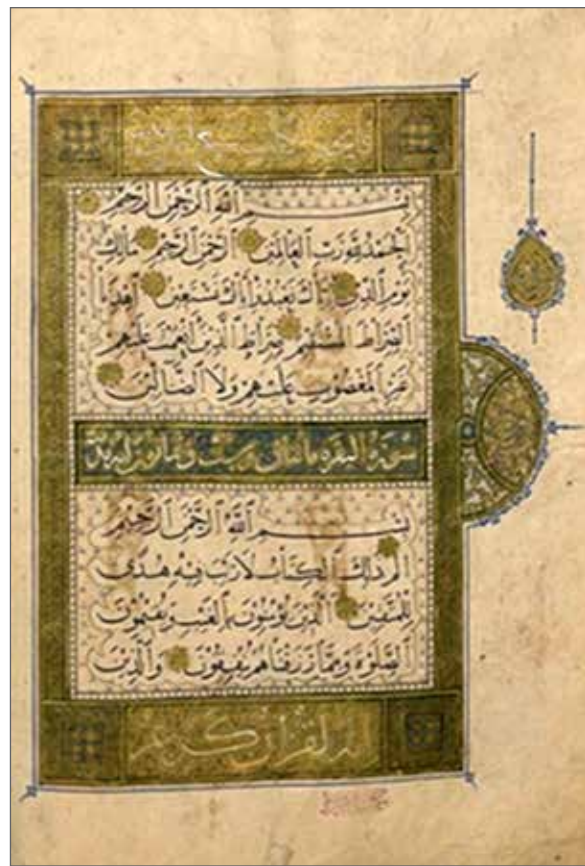 بسم الله الرحمن الرحيم
الحمد لله رب العالمين الرحمن الرحيم مالك
يوم الدين اياك نعبد واياك نستعين اهدنا
الصراط المستقيم صراط الذين انعمت عليهم
غير المغضوب عليهم ولا الضالين
سورة البقرة مائتان وست وثمانون
بسم الله الرحمن الرحيم
الم ذلك الكتاب لا ريب فيه هدى
للمتقين الذين يؤمنون بالغيب ويقيمون
الصلوة ومما رزقناهم ينفقون والذين
انه لقرآن كريم